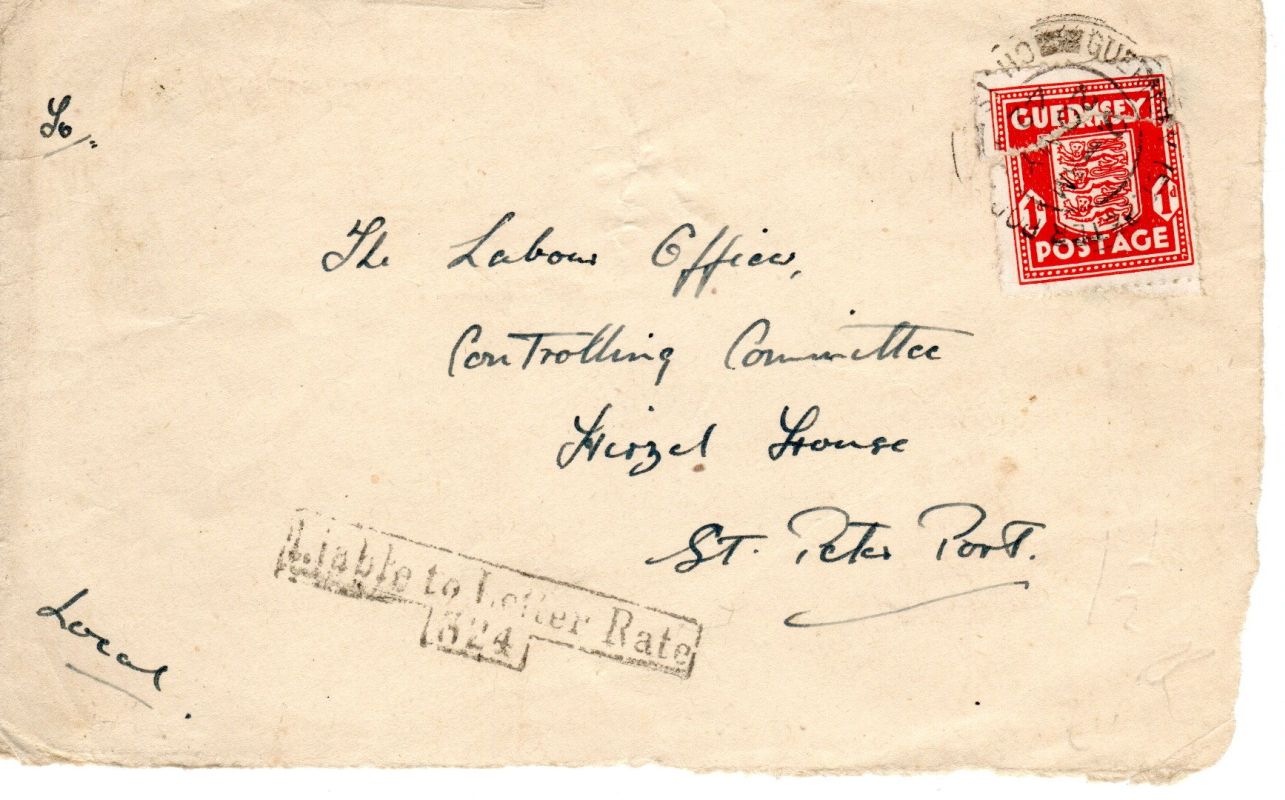 To
GUERNSEY
1d 1d
POSTAGE
The Labour Office,
Controlling Committee
Hirzel House
St. Peter Port.
Liable to Letter Rate
324
Local.